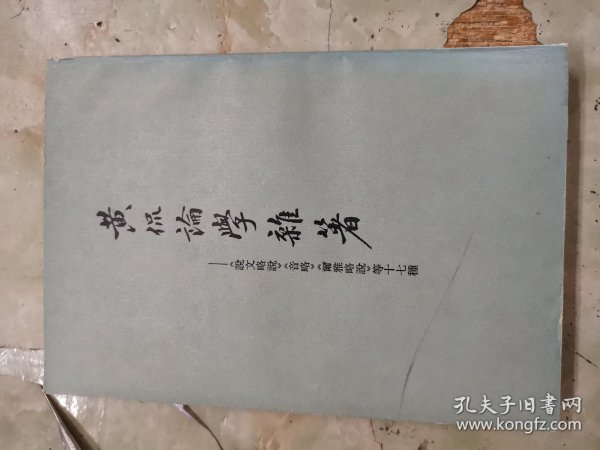 黄侃論學雜著
——《說文略說》《音略》《爾雅略說》等十七種
孔夫子旧书网
www.kongfz.com